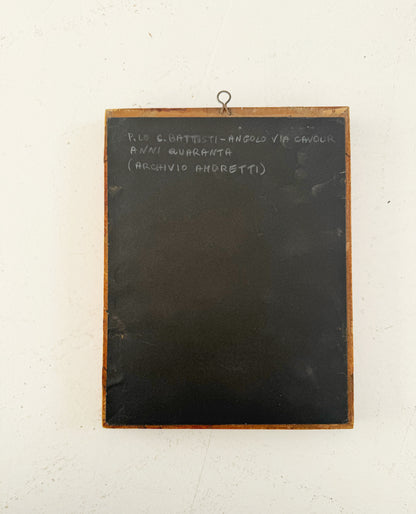 P.LO C. BATTISTI - ANGOLO VIA CAVOUR
ANNI QUARANTA
(ARCHIVIO ANDRETTI)